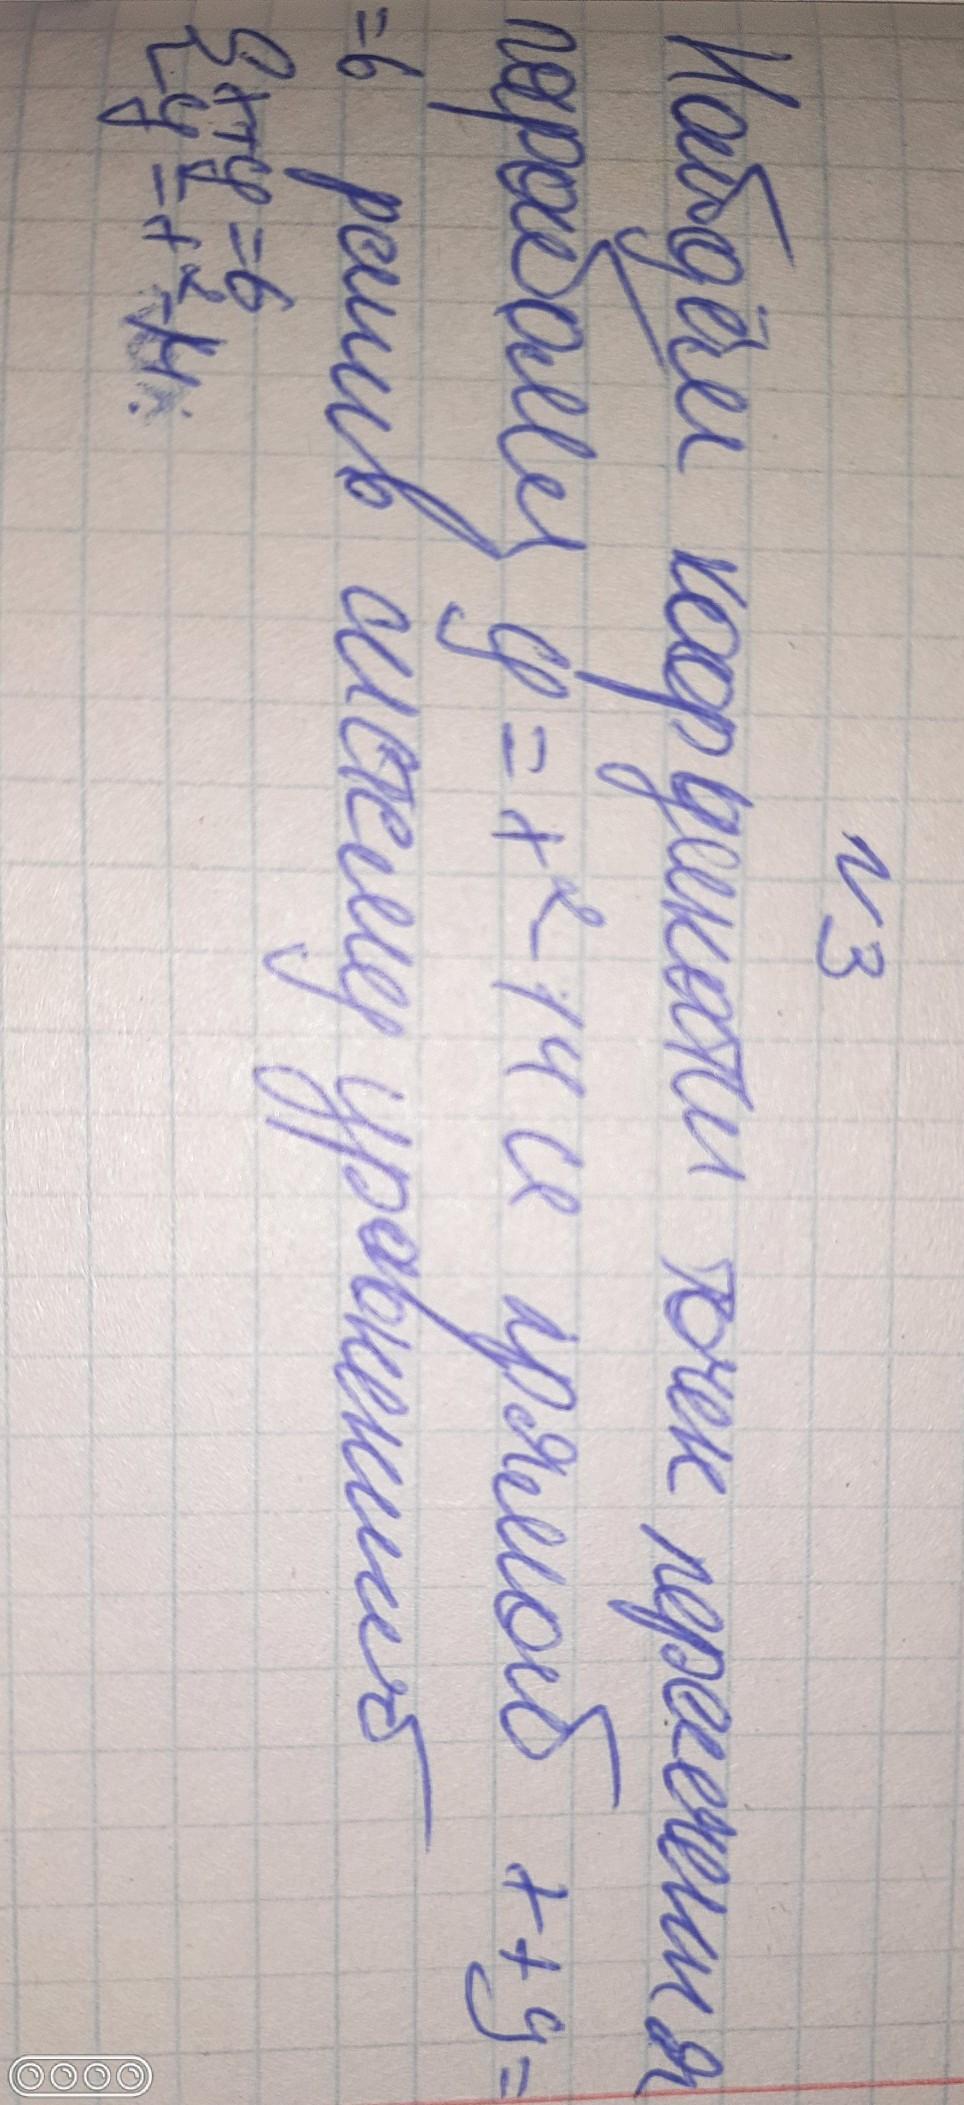 №3
Найдём координаты точек пересечения
параболы y = x² - 14 с прямой x + y =
= 6 решив систему уравнений
{ x + y = 6
{ y = x² - 14.